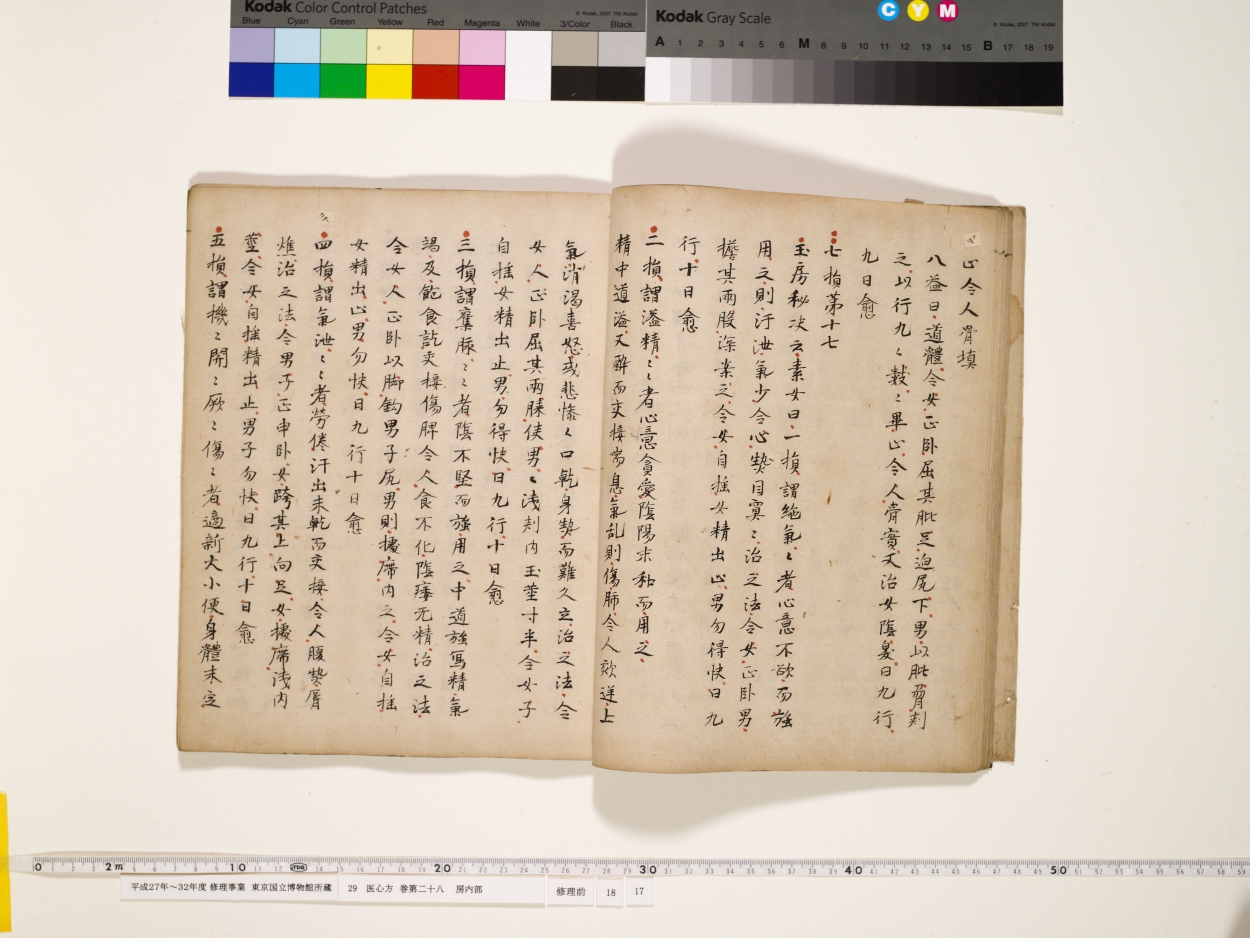 Kodak Color Control Patches
© Kodak, 2007 TM: Kodak
Blue Cyan Green Yellow Red Magenta White 3/Color Black
Kodak Gray Scale
C Y M
© Kodak, 2007 TM: Kodak
A 1 2 3 4 5 6 M 8 9 10 11 12 13 14 15 B 17 18 19
止令人骨填
八益曰道體令女正卧屈其胑足迫尻下男以胑脅刾
之以行九〻數〻畢止令人骨實又治女陰臭日九行
九日愈
七損苐十七
玉房秘决云素女曰一損謂絶氣〻者心意不欲而強
用之則汗泄氣少令心熱目冥〻治之法令女正卧男
擔其兩股深案之令女自揺女精出止男勿得快日九
行十日愈
二損謂溢精〻者心意貪愛陰陽未和而用之
精中道溢又醉而交接喘息氣乱則傷肺令人欬逆上
氣消渴喜怒或悲慘〻口乾身熱而難久立治之法令
女人正卧屈其兩膝俠男〻淺刾内玉莖寸半令女子
自揺女精出止男勿得快日九行十日愈
三損謂奪脉〻者陰不堅而強用之中道強寫精氣
竭及飽食訖交接傷脾令人食不化陰痿无精治之法
令女人正卧以脚鈎男子尻男則據席内之令女自揺
女精出止男勿快日九行十日愈
四損謂氣泄〻者勞倦汗出未乾而交接令人腹熱脣
燋治之法令男子正申卧女跨其上向足女據席淺内
莖令女自揺精出止男子勿快日九行十日愈
五損謂機〻開〻厥〻傷〻者適新大小便身體未定
0 2m 10 20 30 40 50
平成27年～32年度 修理事業 東京国立博物館所蔵
29 医心方 巻第二十八 房内部
修理前
18
17